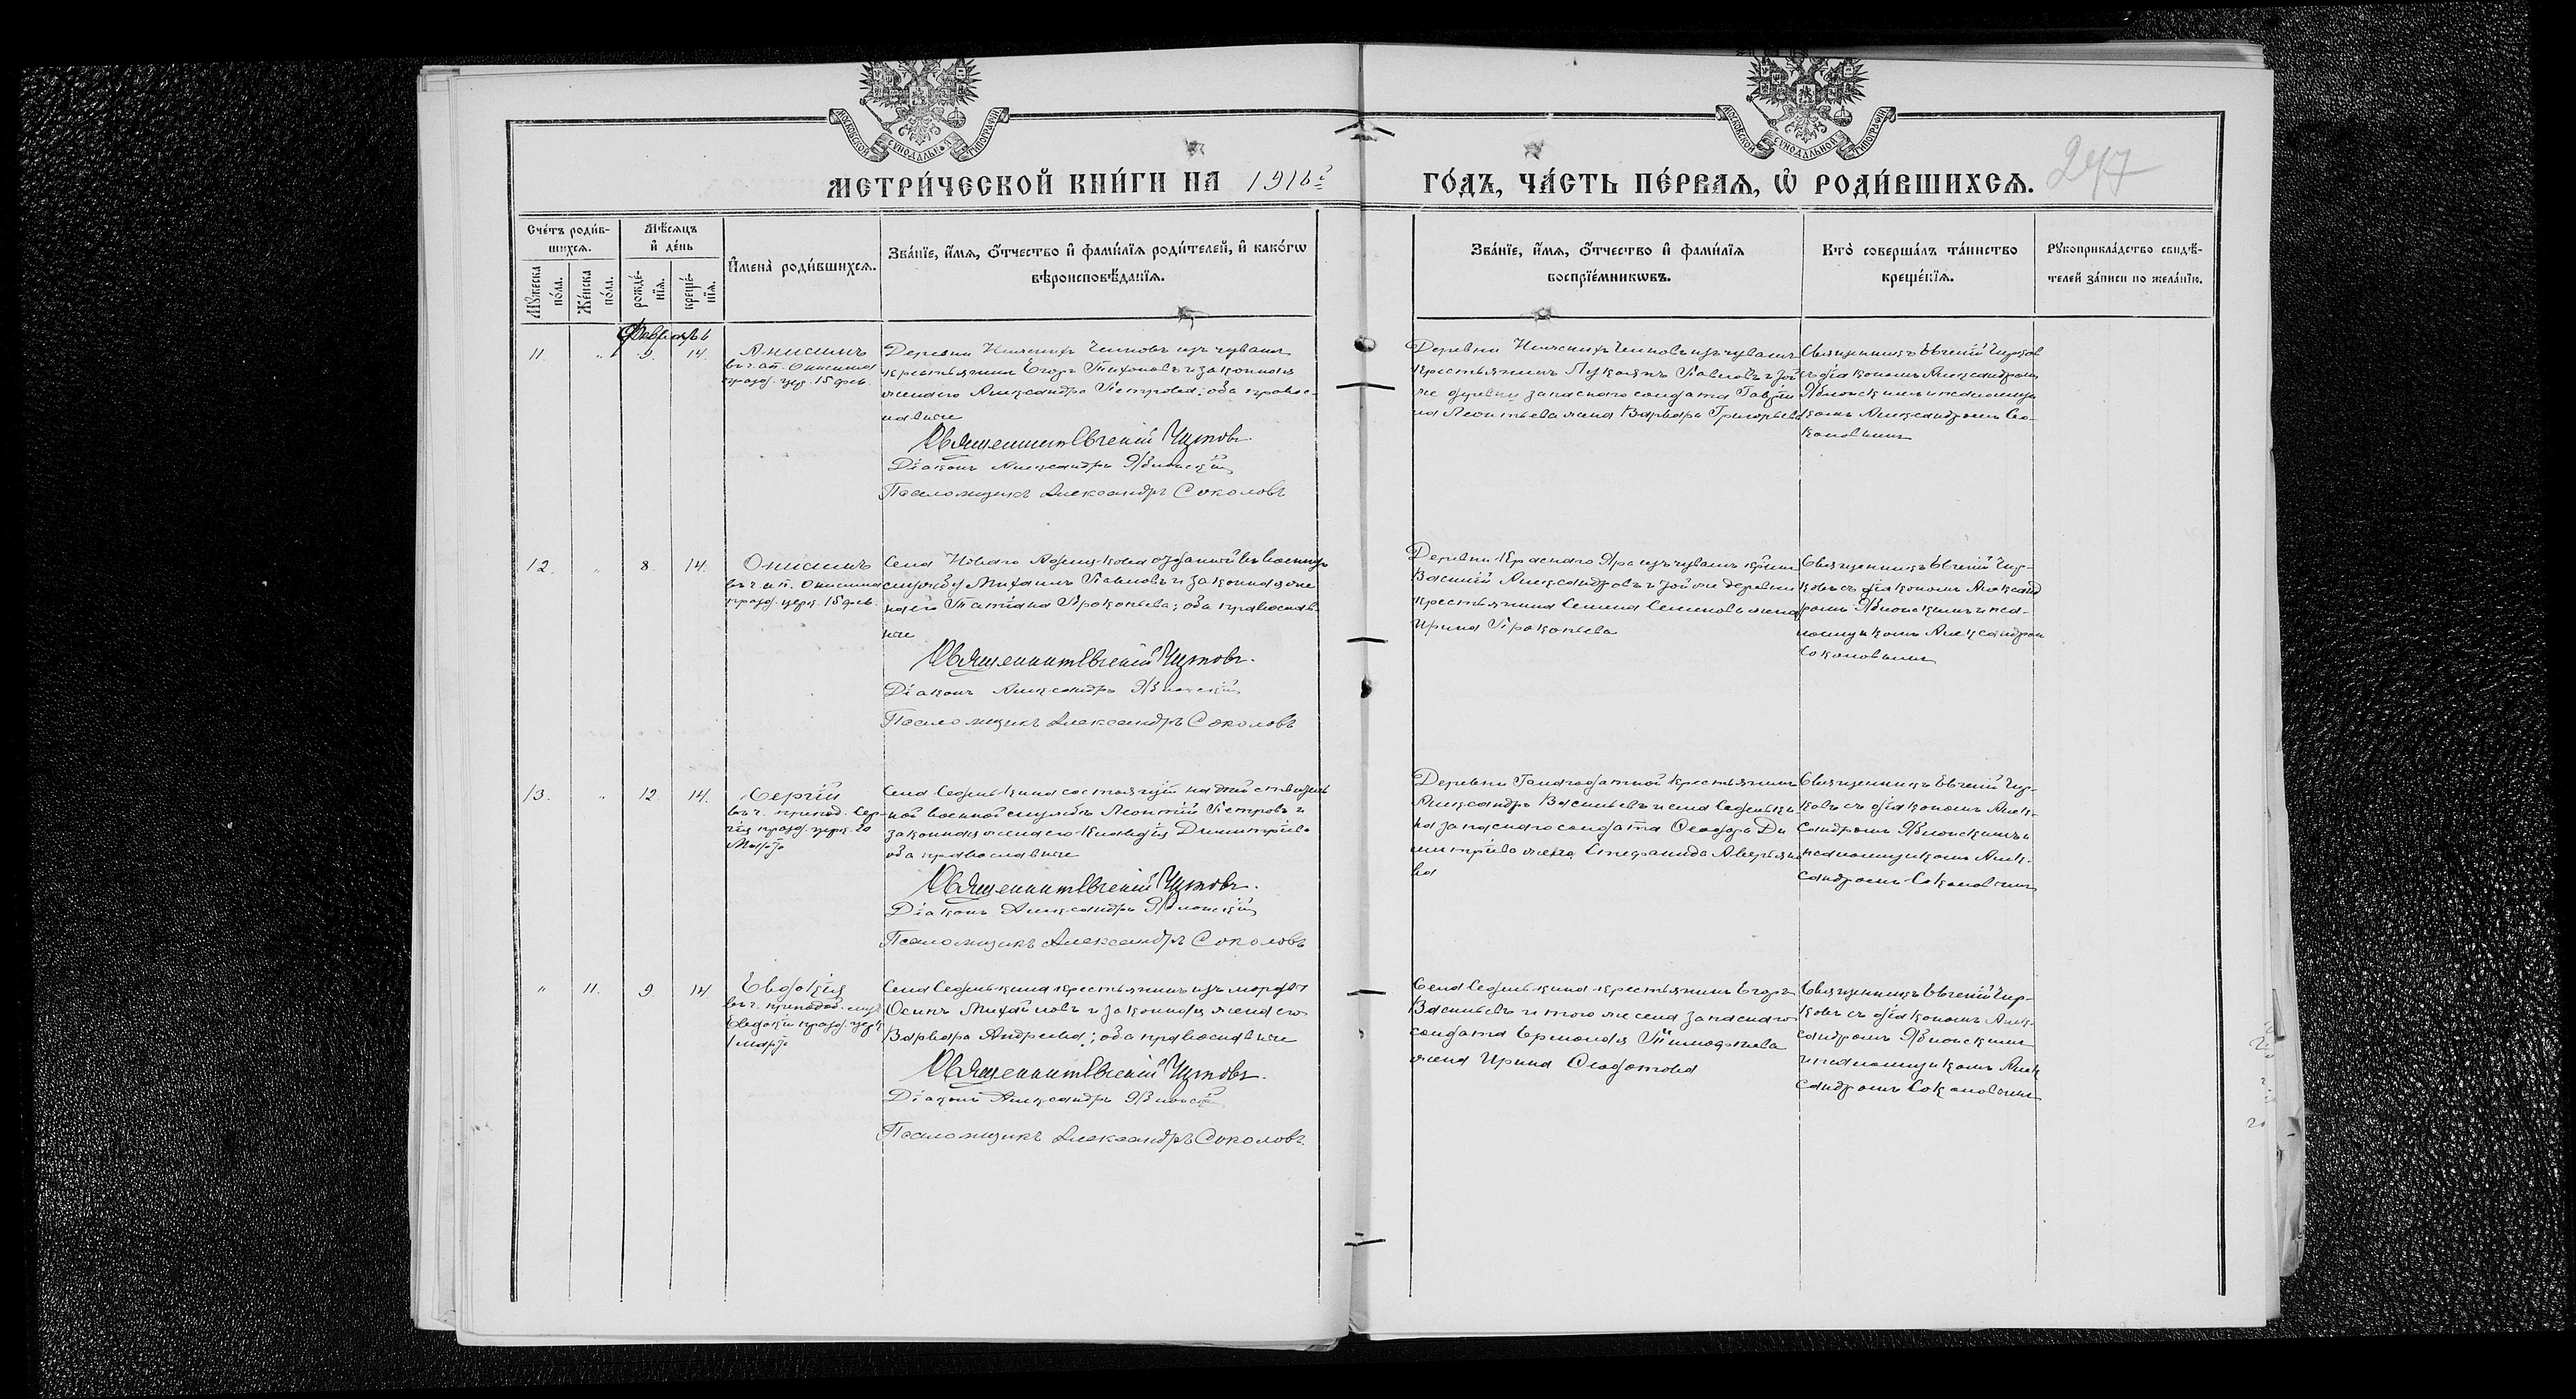 МОСКОВСКОЙ СѴНОДАЛЬНОЙ ТИПОГРАФІИ
МОСКОВСКОЙ СѴНОДАЛЬНОЙ ТИПОГРАФІИ
МЕТРИ́ЧЕСКОЙ КНИ́ГИ НА 1916 г
ГО́ДЪ, ЧА́СТЬ ПЕ́РВАѦ, Ѡ҆ РОДИ́ВШИХСѦ.
247
Сче́тъ роди́в-
шихсѧ.
Мꙋ́жеска по́ла.
Же́нска по́ла.
Мѣ́сѧцъ
и҆ де́нь
рожде́-
нїѧ.
креще́-
нїѧ.
И҆мена̀ роди́вшихсѧ.
Зва́нїе, и҆́мѧ, ѻ҆́тчество и҆ фами́лїѧ роди́телей, и҆ како́гѡ
вѣроисповѣ́данїѧ.
Зва́нїе, и҆́мѧ, ѻ҆́тчество и҆ фами́лїѧ
воспрїе́мникѡвъ.
Кто̀ соверша́лъ та́инство
креще́нїѧ.
Рꙋкоприкла́дство свидѣ́-
телей за́писи по жела́нїю.
Февраль
11. " 9. 14.
Анисимъ
въ ч. ап. Онисима
празд. церк. 15 фев.
Деревни Чемковъ изъ чувашъ
крестьянинъ Егоръ Тихоновъ и законная
жена его Александра Петрова; оба правос-
лавные
Священникъ Евгеній
Діаконъ Александръ Яблонскій
Псаломщикъ Александръ Соколовъ
Деревни Чемковъ изъ чувашъ
крестьянинъ Лукьянъ Павловъ и той
же деревни запаснаго солдата
Леонтьева жена Варвара Григорьева
Священникъ Евгеній
съ діакономъ Александромъ
Яблонскимъ и псаломщи
комъ Александромъ Со-
коловымъ
12. " 8. 14.
Онисимъ
въ ч. ап. Онисима
празд. церк. 15 фев.
Села Новаго отданный въ военную
службу Михаилъ Павловъ и законная же
на его Татіана Прокопьева; оба православ-
ные
Священникъ Евгеній
Діаконъ Александръ Яблонскій
Псаломщикъ Александръ Соколовъ
Деревни Краснаго Яра изъ чувашъ
Василій Александровъ и той же деревни
крестьянина Семена Семенова жена
Ирина Прокопьева
Священникъ Евгеній
съ діакономъ Александ
ромъ Яблонскимъ и пса-
ломщикомъ Александром
Соколовымъ
13. " 12. 14.
Сергій
въ ч. препод. Сер-
гія празд. церк. 20
Марта
Села Седенькина состоящій на дѣйствитель
ной военной службѣ Леонтій Петровъ и
законная жена его Клавдія Димитріева
оба православные
Священникъ Евгеній
Діаконъ Александръ Яблонскій
Псаломщикъ Александръ Соколовъ
Деревни крестьянинъ
Александръ Васильевъ и села Седеньки
на запаснаго солдата Ѳеодора Ди
митріева жена Стефанида Аверьяно
ва
Священникъ Евгеній
съ діакономъ Алек-
сандромъ Яблонскимъ и
псаломщикомъ Алек-
сандромъ Соколовымъ
" 11. 9 14
Евдокія
въ ч. преподоб. муч
Евдокіи празд. церк
1 марта
Села Седенькина крестьянинъ изъ мордвы
Осипъ Михайловъ и законная жена его
Варвара Андреева; оба православные
Священникъ Евгеній
Діаконъ Александръ Яблонскій
Псаломщикъ Александръ Соколовъ.
Села Седенькина крестьянинъ Егоръ
Васильевъ и того же села запаснаго
солдата Ермолая Тимофеева
жена Ирина Ѳедотова
Священникъ Евгеній
съ діакономъ Алек-
сандромъ Яблонскимъ
и псаломщикомъ Алек
сандромъ Соколовымъ